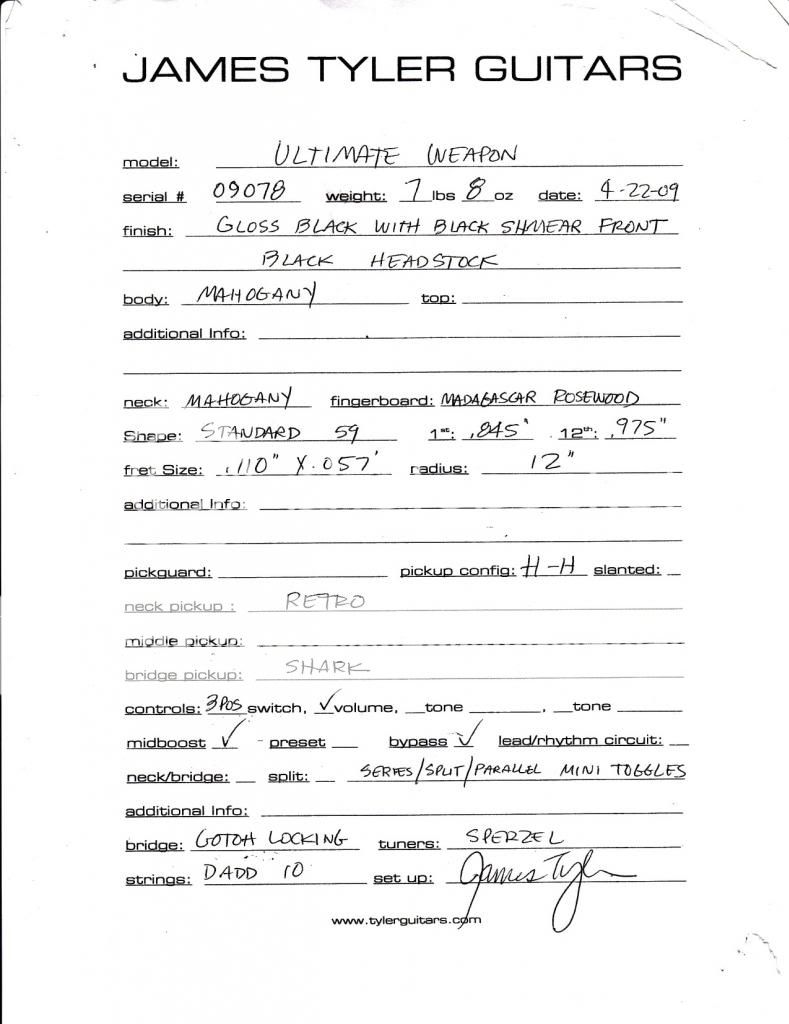 JAMES TYLER GUITARS
model: ULTIMATE WEAPON
serial # 09078 weight: 7 lbs 8 oz date: 4-22-09
finish: GLOSS BLACK WITH BLACK SHMEAR FRONT
BLACK HEADSTOCK
body: MAHOGANY top:
additional Info:
neck: MAHOGANY fingerboard: MADAGASCAR ROSEWOOD
Shape: STANDARD 59 1st: .845" 12th: .975"
fret Size: .110" X .057" radius: 12"
additional Info:
pickguard: pickup config: H-H slanted:
neck pickup : RETRO
middle pickup:
bridge pickup: SHARK
controls: 3 POS switch, ✓volume, tone , tone
midboost ✓ preset bypass ✓ lead/rhythm circuit:
neck/bridge: split: SERIES/SPLIT/PARALLEL MINI TOGGLES
additional Info:
bridge: GOTOH LOCKING tuners: SPERZEL
strings: DADD 10 set up: James Tyler
www.tylerguitars.com